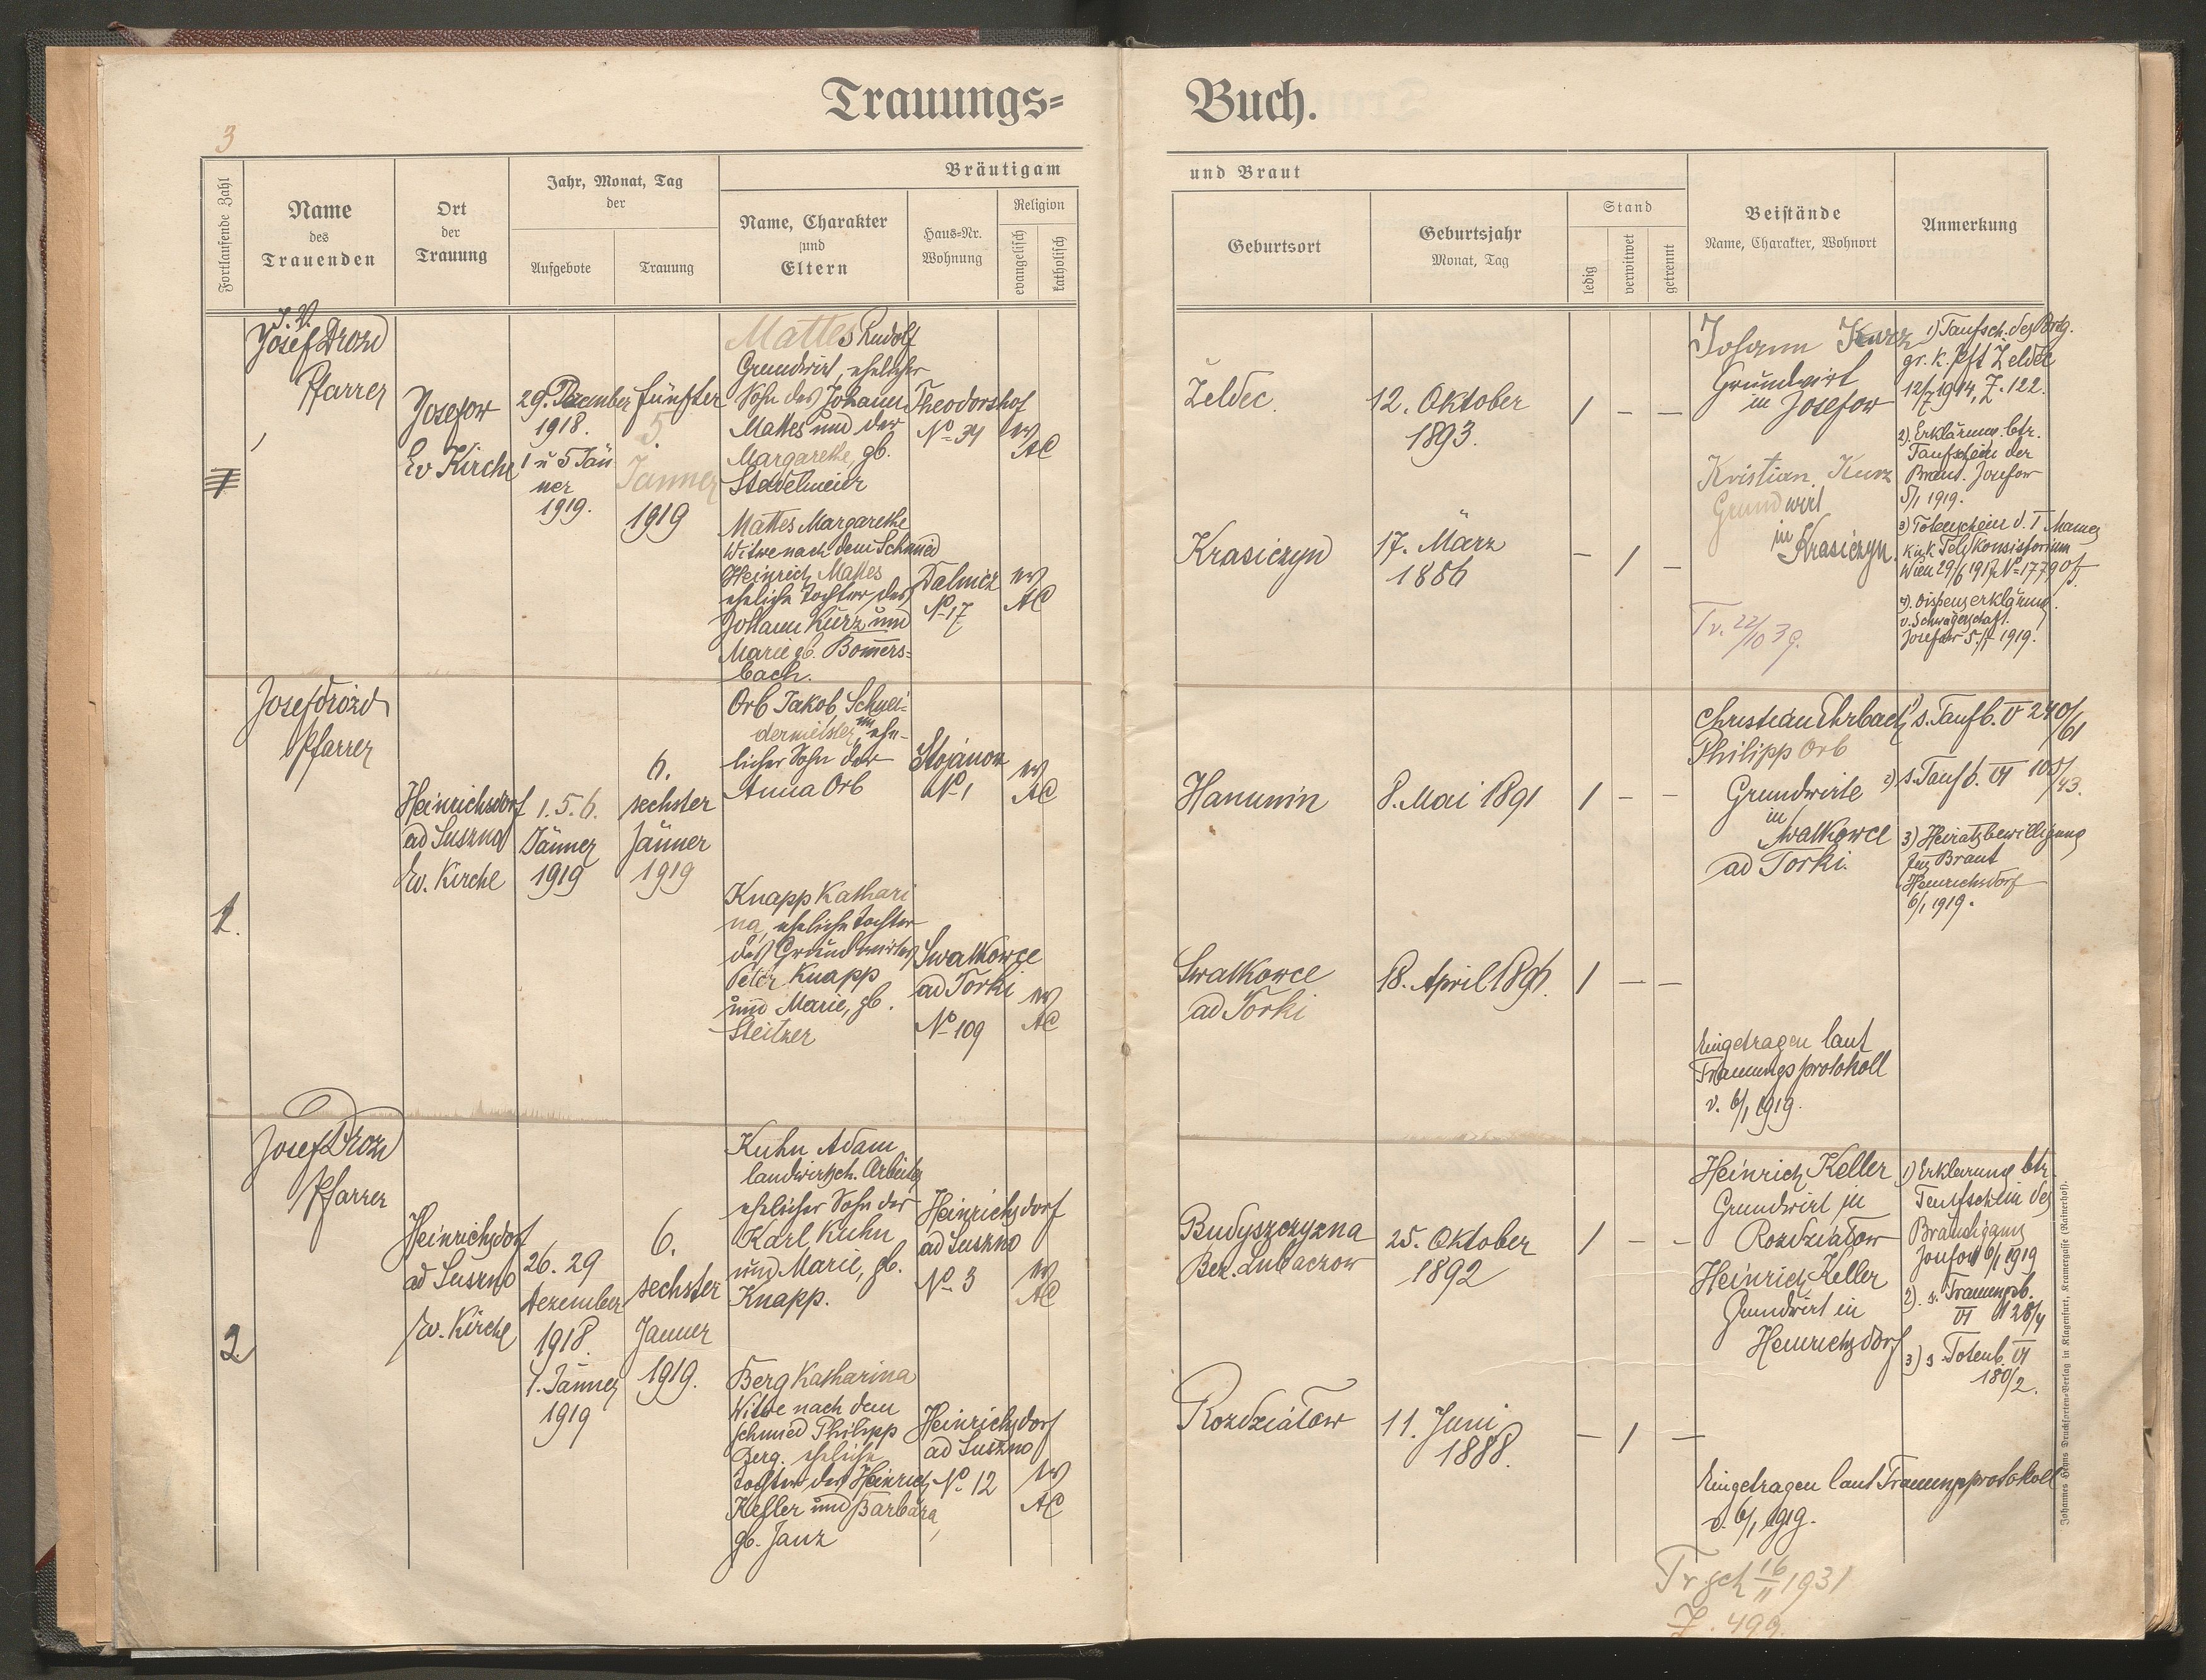 Trauungs=
Buch.
3
Fortlaufende Zahl
Name
des
Trauenden
Ort
der
Trauung
Jahr, Monat, Tag
der
Aufgebote
Trauung
Bräutigam
Name, Charakter
und
Eltern
Haus-Nr.
Wohnung
Religion
evangelisch
katholisch
und Braut
Geburtsort
Geburtsjahr
Monat, Tag
Stand
ledig
verwitwet
getrennt
Beistände
Name, Charakter, Wohnort
Anmerkung
Josef Drozd
Pfarrer
Josefow
Ev Kirche
29. Dezember
1918.
1 u 5 Jän
ner
1919.
fünfter
5.
Jänner
1919
Mattes Rudolf
Grundwirt, ehelicher
Sohn des Johann
Mattes und der
Margarethe, gb.
Stadelmeier
Theodorshof
No 34
ev
AC
Mattes Margarethe
Witwe nach dem Schmied
Heinrich Mattes
eheliche Tochter des
Johann Kurz und
Marie gb. Bomers=
bach.
Dalnicz
No 17
ev
AC
Želdec.
12. Oktober
1893.
1 – –
Krasiczyn
17. März
1886
– 1 –
Johann Kurz
Grundwirt
in Josefow
Kristian Kurz
Grundwirt
in Krasiczyn.
Tr. 22/10 39.
1) Taufsch. des Brtg.
gr. k. Pft Želdec
12/7 1914, Z. 122.
2). Erklärung btr.
Taufschein der
Braut. Josefow
5/1 1919.
3) Totenschein d. I Mannes
k u k Feldkonsistorium
Wien 29/6 1917 No 17790
4). Dispenserklärung
v. Schwägerschaft.
Josefow 5/1 1919.
1.
Josef Drozd
Pfarrer
Heinrichsdorf
ad Suszno
Ev. Kirche
1. 5. 6.
Jänner
1919
6.
sechster
Jänner
1919
Orb Jakob Schnei-
dermeister, uneh-
licher Sohn der
Anna Orb
Stojanow
No 1
ev
AC
Knapp Kathari
na, eheliche Tochter
des Grundwirtes
Peter Knapp
und Marie, gb.
Steitzer
Swatkowce
ad Torki
No 109
ev
AC
Hanunin
8. Mai 1891
1 – –
Swatkowce
ad Torki
18. April
1 – –
Christian Ehrbach
Philipp Orb
Grundwirte
in
Swatkowce
ad Torki.
Eingetragen laut
Trauungsprotokoll
v. 6/1 1919.
1) s. Taufb. V 240/61
2) s. Taufb. VI 105/43.
3) Heiratsbewilligung
der Braut
Heinrichsdorf
6/1 1919.
2.
Josef Drozd
Pfarrer
Heinrichsdorf
ad Suszno
Ev. Kirche
26. 29
Dezember
1918.
1. Jänner
1919
6.
sechster
Jänner
1919.
Kuhn Adam
landwirtsch. Arbeiter
ehelicher Sohn des
Karl Kuhn
und Marie, gb.
Knapp.
Heinrichsdorf
ad Suszno
No 3
ev
AC
Berg Katharina
Witwe nach dem
Schmied Philipp
Berg, eheliche
Tochter des Heinrich
Keller und Barbara,
gb. Janz
Heinrichsdorf
ad Suszno
No 12
ev
AC
Budyszczyzna
Bez. Lubaczow
25. Oktober
1892
1 – –
Rozdziałow
11. Juni
1888.
– 1 –
Heinrich Keller
Grundwirt in
Rozdziałow
Heinrich Keller
Grundwirt in
Heinrichsdorf
Eingetragen laut Trauungsprotokoll
v. 6/1 1919.
1) Erklärung btr.
Taufschein des
Bräutigams
Josefow 6/1 1919
2). s. Trauungsb.
VI 128/4
3) s. Totenb. VI
180/2.
Tr sch 16/II 1931
Z. 499.
Johannes Heyns Drucksorten-Verlag in Klagenfurt, Kramergasse (Rainerhof).